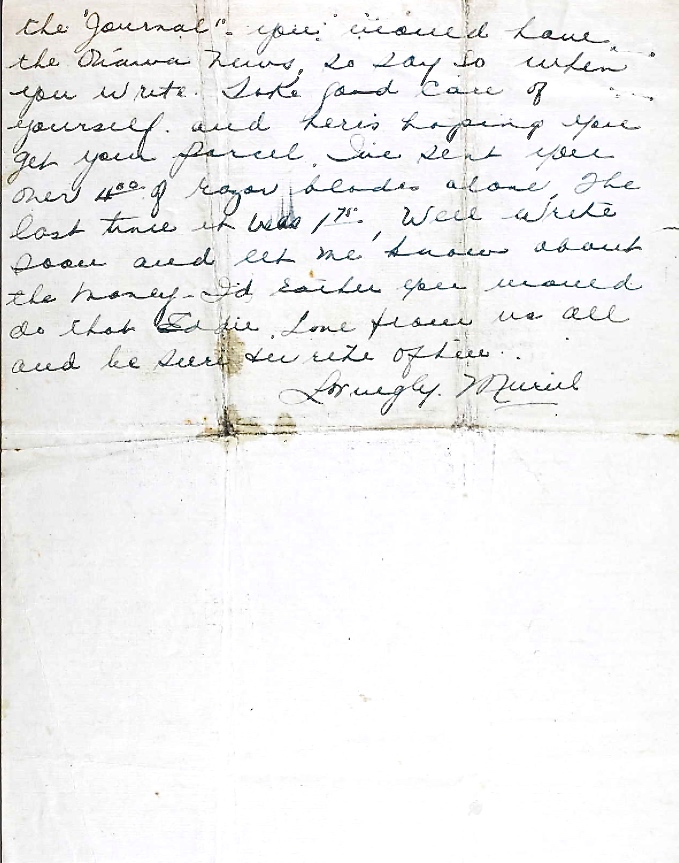 the "Journal" - you would have
the Ottawa News, so say so when
you write. Take good care of
yourself. and here's hoping you
get your parcel. I've sent you
over 4⁰⁰ of razor blades alone, The
last time it was 1⁷⁵. Well write
soon and let me know about
the money - I'd rather you would
do that Eddie. Love from us all
and be sure & write often..
Lovingly. Muriel